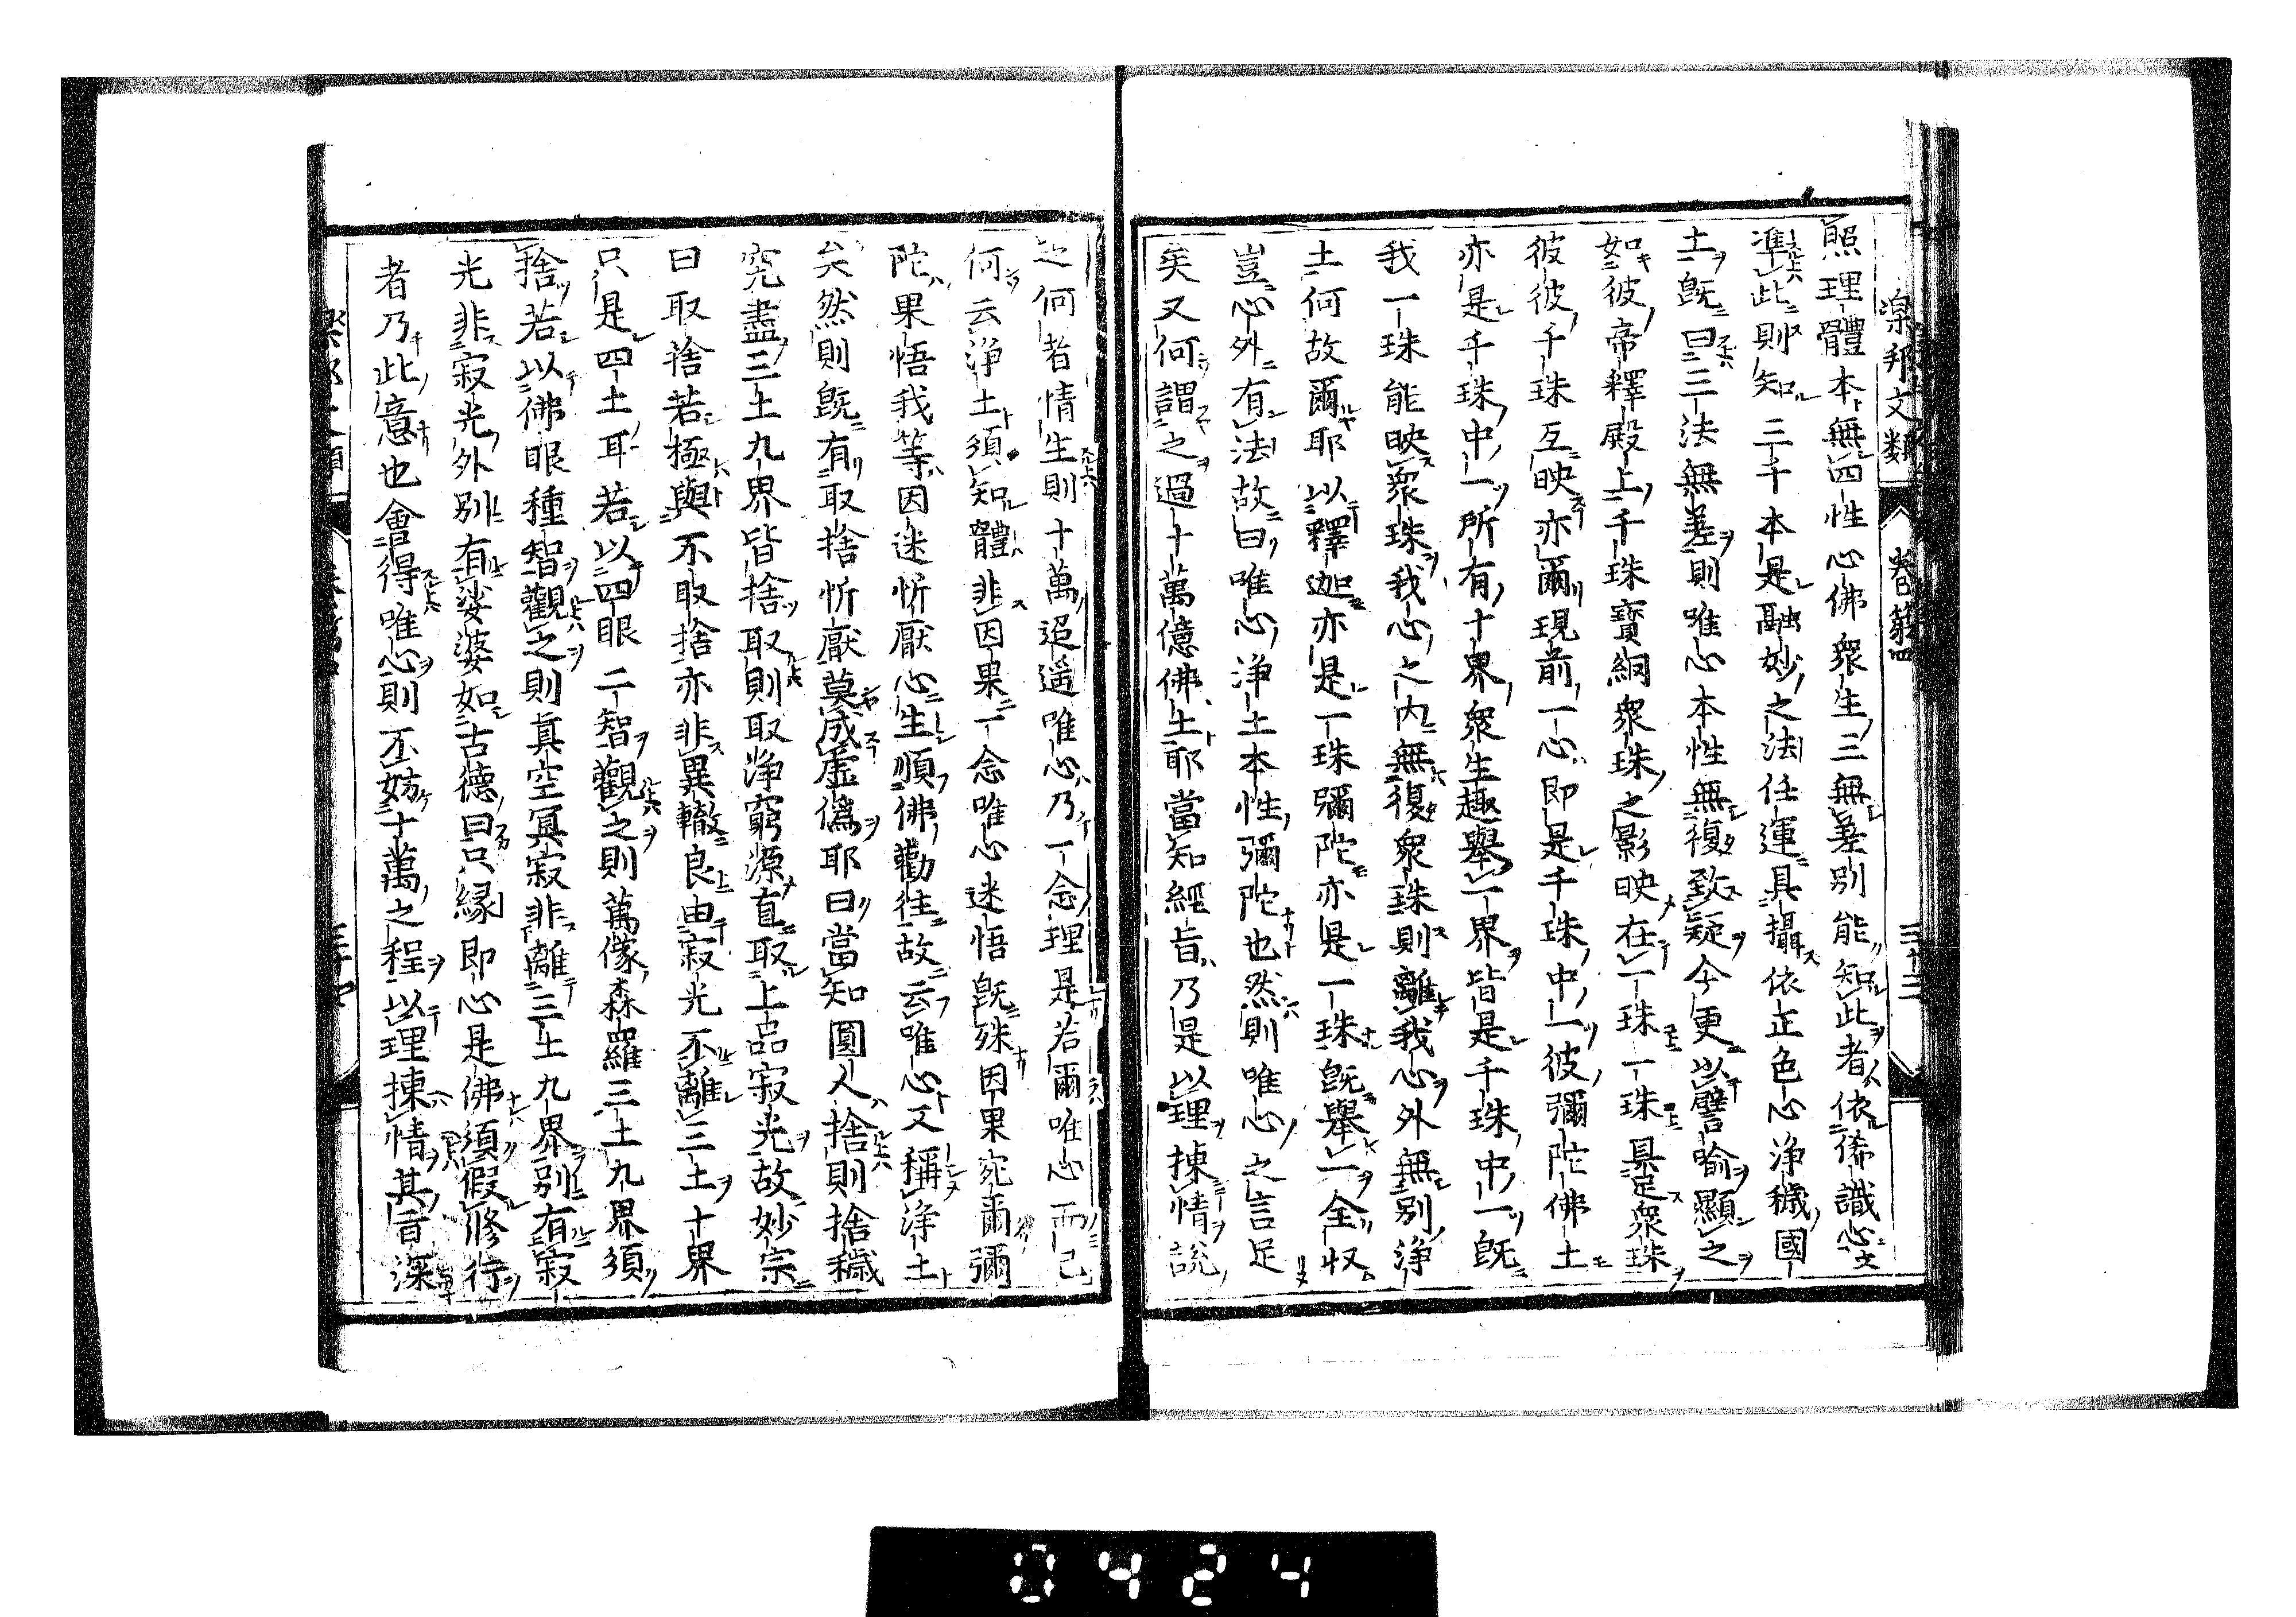 樂邦文類 卷第四 三十三
照理體本無四性心佛衆生三無差別能知此者依俙識心文
準此則知三千本是融妙之法任運具攝依正色心淨穢國
土既曰三法無差則唯心本性無復致疑今更以譬喻顯之
如彼帝釋殿上千珠寶網衆珠之影映在一珠一珠具足衆珠
彼彼千珠互映亦爾現前一心即是千珠中一彼彌陀佛土
亦是千珠中一所有十界衆生趣舉一界皆是千珠中一既
我一珠能映衆珠我心之内無復衆珠則離我心外無別淨
土何故爾耶以釋迦亦是一珠彌陀亦是一珠既舉一全收
豈心外有法故曰唯心淨土本性彌陀也然則唯心之言足
矣又何謂之過十萬億佛土耶當知經旨乃是以理揀情說
之何者情生則十萬迢遥唯心乃一念理是若爾唯心而已
何云淨土須知體非因果一念唯心迷悟既殊因果宛爾彌
陀果悟我等因迷忻厭心生順佛勸往故云唯心又稱淨土
矣然則既有取捨忻厭莫成虚僞耶曰當知圓人捨則捨穢
究盡三土九界皆捨取則取淨窮源直取上品寂光故妙宗
曰取捨若極與不取捨亦非異轍良由寂光不離三土十界
只是四土耳若以四眼二智觀之則萬像森羅三土九界須
捨若以佛眼種智觀之則真空冥寂非離三土九界別有寂
光非寂光外別有娑婆如古德曰只緣即心是佛須假修行
者乃此意也會得唯心則不妨十萬之程以理揀情其旨深